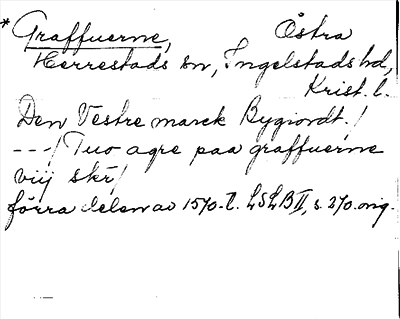 * Graffuerne, Östra
Herrestads sn, Ingelstads hd,
Krist. l.
Den Vestre marck Bygiordt. /
---/ Tuo agre paa graffuerne
viij skr /
förra delen av 1570-t. LSLB II, s. 270. orig.